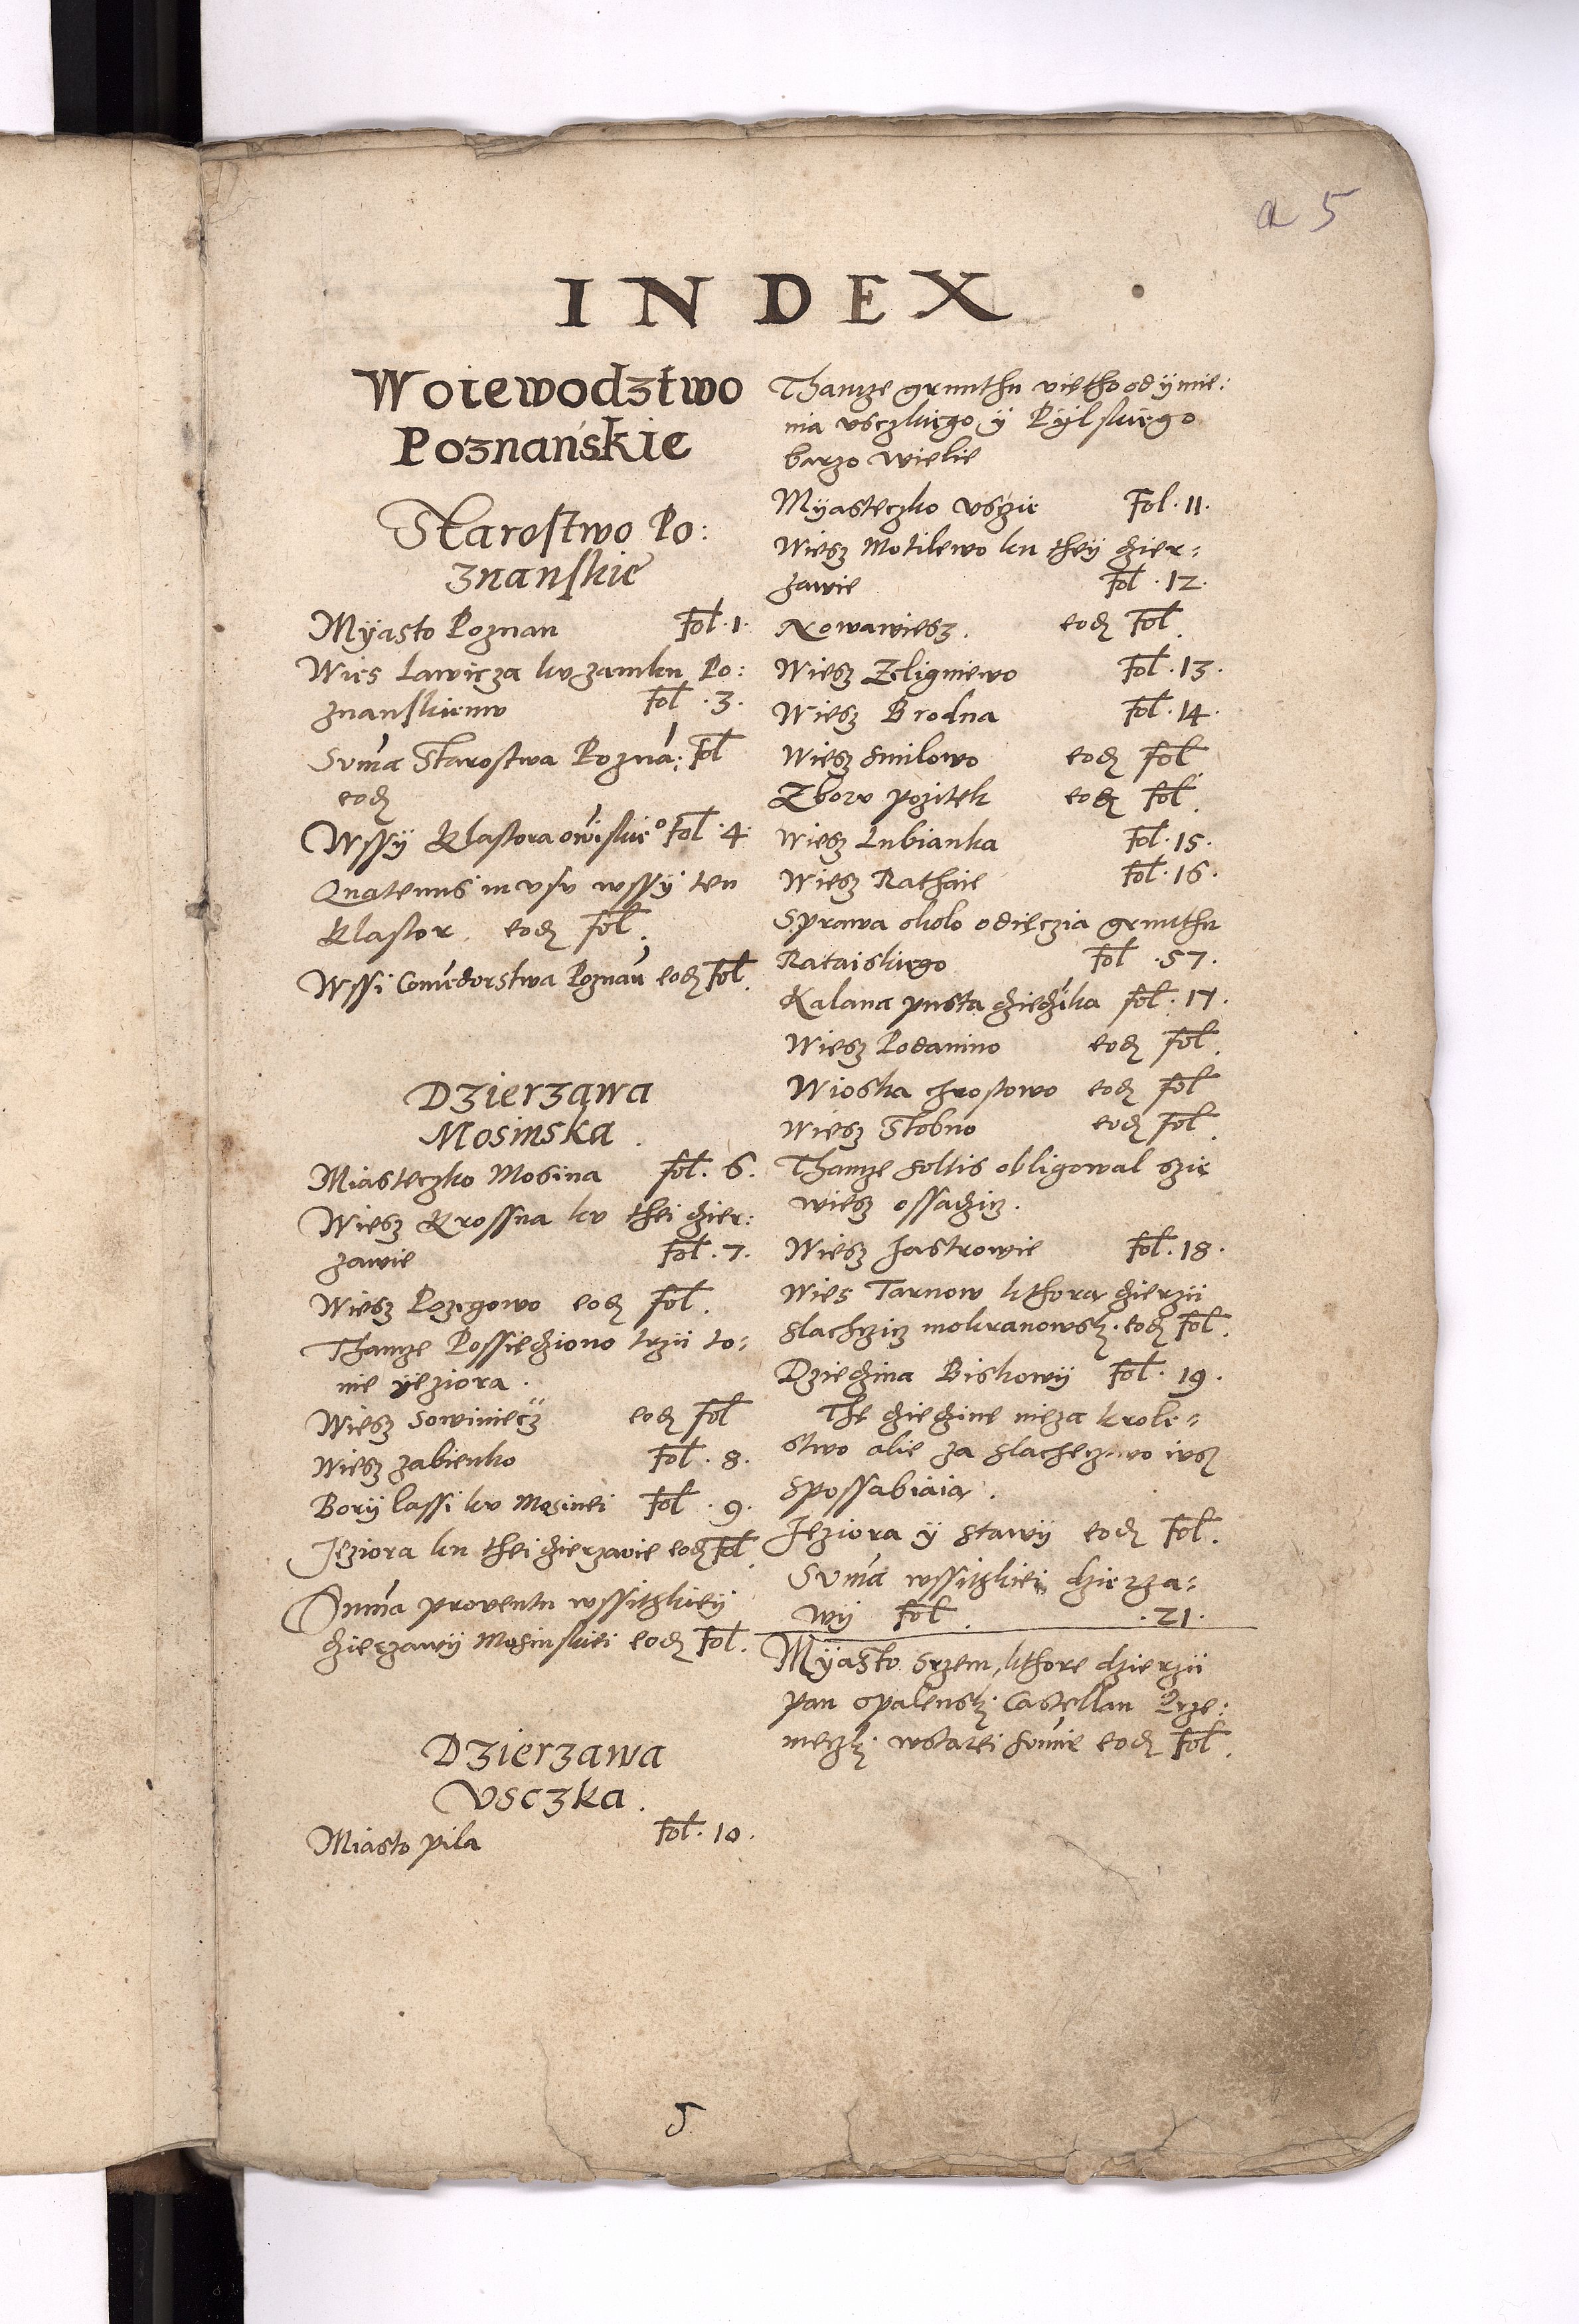 a 5
INDEX
Woiewodztwo
Poznańskie
Starostwo Po:
znanskie
Myasto Poznan Fol. 1.
Wies Lawicza ku zamku Po:
znanskiemu Fol. 3.
Suma Starostwa Pozna: Fol
eod
Wssy Klastora owiskie° Fol. 4.
Quatenus in usu wssy ten
Klastor eod fol.
Wssi Comedorstwa Poznan eod Fol.
Dzierzawa
Mosinska.
Miasteczko Mosina fol. 6.
Wiesz Krossna ku thei dzier:
zawie fol. 7.
Wiesz Pozegowo eod fol.
Thamze Possiedziono trzii to=
nie yeziora.
Wiesz Sowiniecz eod fol
Wiesz zabienko Fol. 8.
Bory lassi ku Mosinei Fol. 9.
Jeziora ku thei dzierzawie eod Fol.
Suma proventu wssitzkiey
dzierzawy Mosinskiei eod Fol.
Dzierzawa
Usczka.
Miasto pila Fol. 10.
Thamze grunthu vietho odymie:
nia usczkiego y Pylskiego
barzo wielie
Myasteczko usczie Fol. 11.
Wiesz Motilewo ku they dzier=
zawie Fol. 12.
Nowawiesz. eod Fol.
Wiesz Zeligniewo Fol. 13.
Wiesz Brodna Fol. 14.
Wiesz Smilowo eod fol.
Zboru pozitek eod fol.
Wiesz Lubianka Fol. 15.
Wiesz Rathaie fol. 16.
Sprawa okolo odięczia grunthu
Rataiskiego Fol. 57.
Kalana pusta dziedzika fol. 17.
Wiesz Podanino eod fol.
Wioska chrostowo eod fol
Wiesz Stobno eod fol.
Thamze soltis obligowal szie
wiesz ossadzicz.
Wiesz Jastrowie fol. 18.
Wies Tarnow kthora dzierzii
slachczicz mokranowsk. eod Fol.
Dziedzina Biskowy Fol. 19.
The dziedzine nieza krole=
stwo alie za slacheczwo wsz
spossabiaia.
Jeziora y stawy eod Fol.
Suma wssitzkiei dzierza=
wy Fol. .21.
Myasto Srzem, kthore dzierzii
pan opalensk. Castellan Prze:
meczk. wstarei somie eod Fol.
5